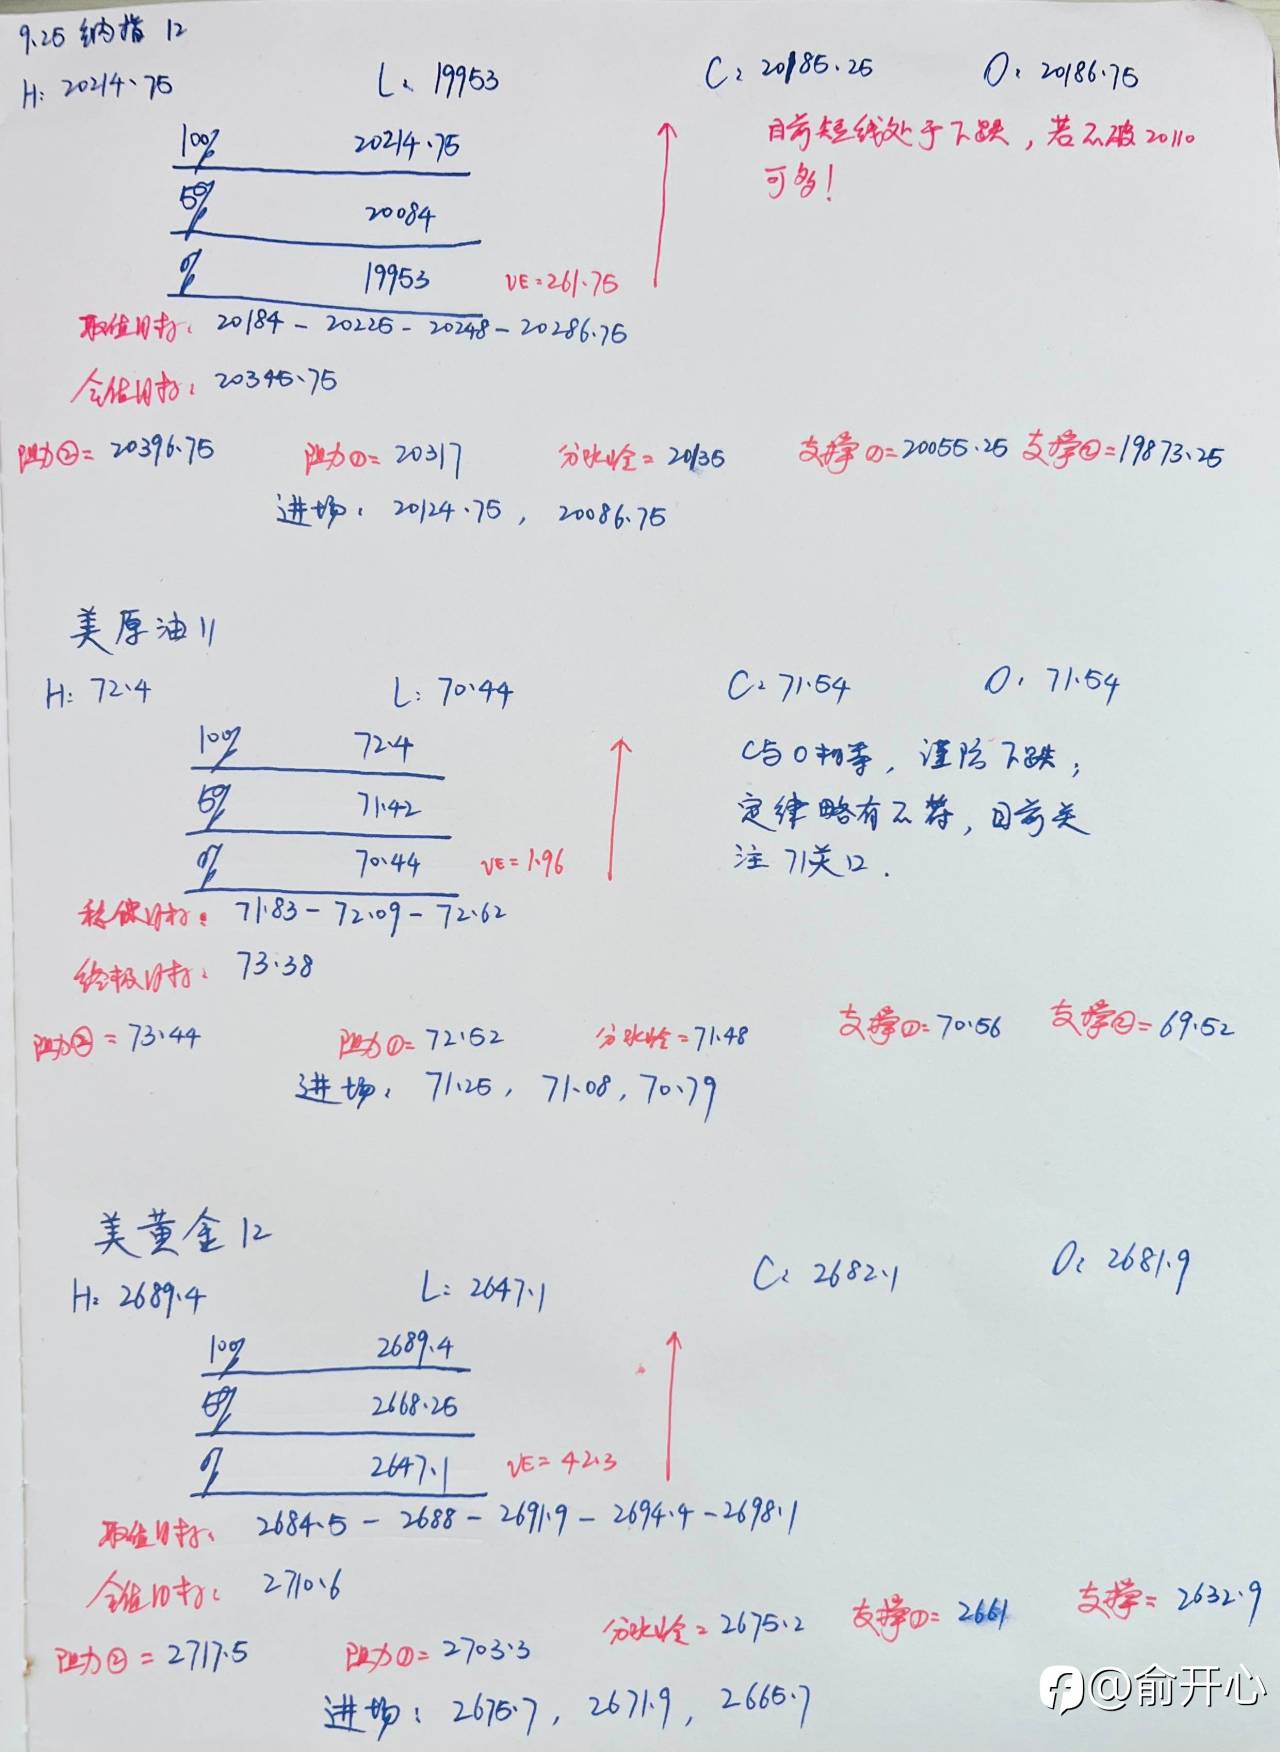 9.25 纳指 12
H: 20214.75 L: 19953 C: 20185.25 O: 20186.75
目前短线处于下跌，若不破20110
可多！
100% 20214.75
50% 20084
0% 19953 VE=261.75
取值目标: 20184 - 20225 - 20248 - 20286.75
全值目标: 20345.75
阻力②= 20396.75 阻力①= 20317 分水岭= 20135 支撑①=20055.25 支撑②=19873.25
进场: 20124.75, 20086.75
美原油11
H: 72.4 L: 70.44 C: 71.54 O: 71.54
100% 72.4
50% 71.42
0% 70.44 VE=1.96
C与O相等，谨防下跌；
定律略有不符，目前关
注 71关口.
稳健目标: 71.83 - 72.09 - 72.62
终极目标: 73.38
阻力②= 73.44 阻力①= 72.52 分水岭=71.48 支撑①=70.56 支撑②=69.52
进场: 71.25, 71.08, 70.79
美黄金12
H: 2689.4 L: 2647.1 C: 2682.1 O: 2681.9
100% 2689.4
50% 2668.25
0% 2647.1 VE= 42.3
取值目标: 2684.5 - 2688 - 2691.9 - 2694.4 - 2698.1
全值目标: 2710.6
阻力②= 2717.5 阻力①= 2703.3 分水岭= 2675.2 支撑①= 2661 支撑= 2632.9
进场: 2675.7, 2671.9, 2665.7
@俞开心